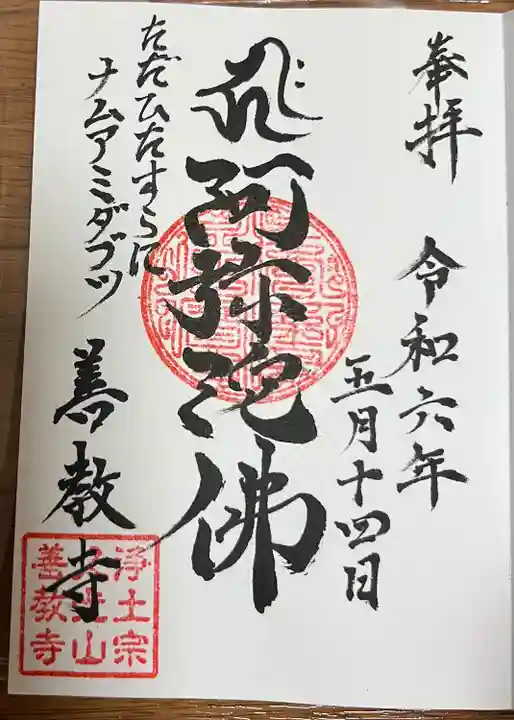 奉拝
令和六年
五月十四日
阿弥陀佛
ただひたすらに
ナムアミダブツ
善教寺
浄土宗
山
善教寺